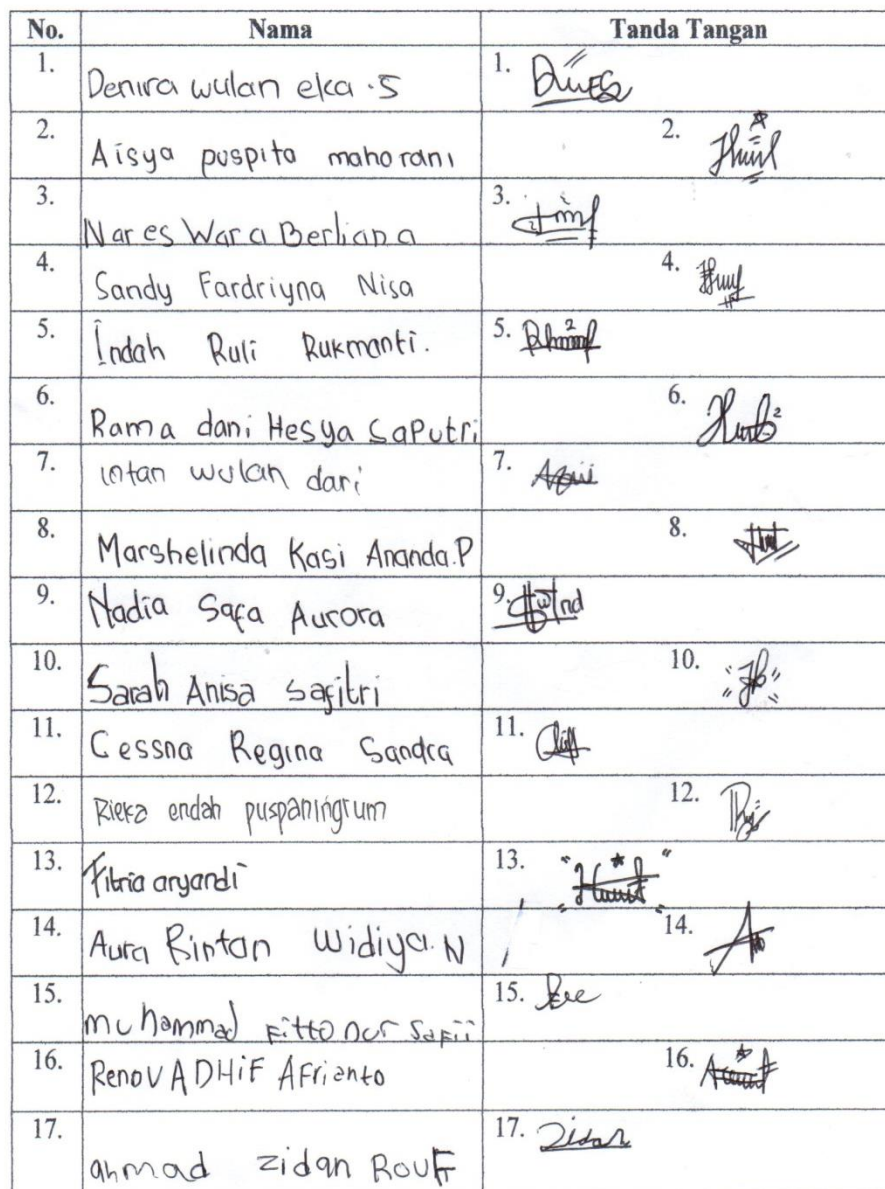 No. Nama Tanda Tangan
1. Denira wulan eka .S 1.
2. Aisya puspita mahorani 2.
3. Nares Wara Berliana 3.
4. Sandy Fardriyna Nisa 4.
5. Indah Ruli Rukmanti. 5.
6. Rama dani Hesya saputri 6.
7. intan wulan dari 7.
8. Marshelinda Kasi Ananda.P 8.
9. Nadia Safa Aurora 9.
10. Sarah Anisa safitri 10.
11. Cessna Regina Sandra 11.
12. Rieka endah puspaningrum 12.
13. Fitria aryandi 13.
14. Aura Bintan Widiya. N 14.
15. muhammad Fitto nur safii 15.
16. Renov ADHiF AFrianto 16.
17. ahmad zidan RouF 17. Zidan